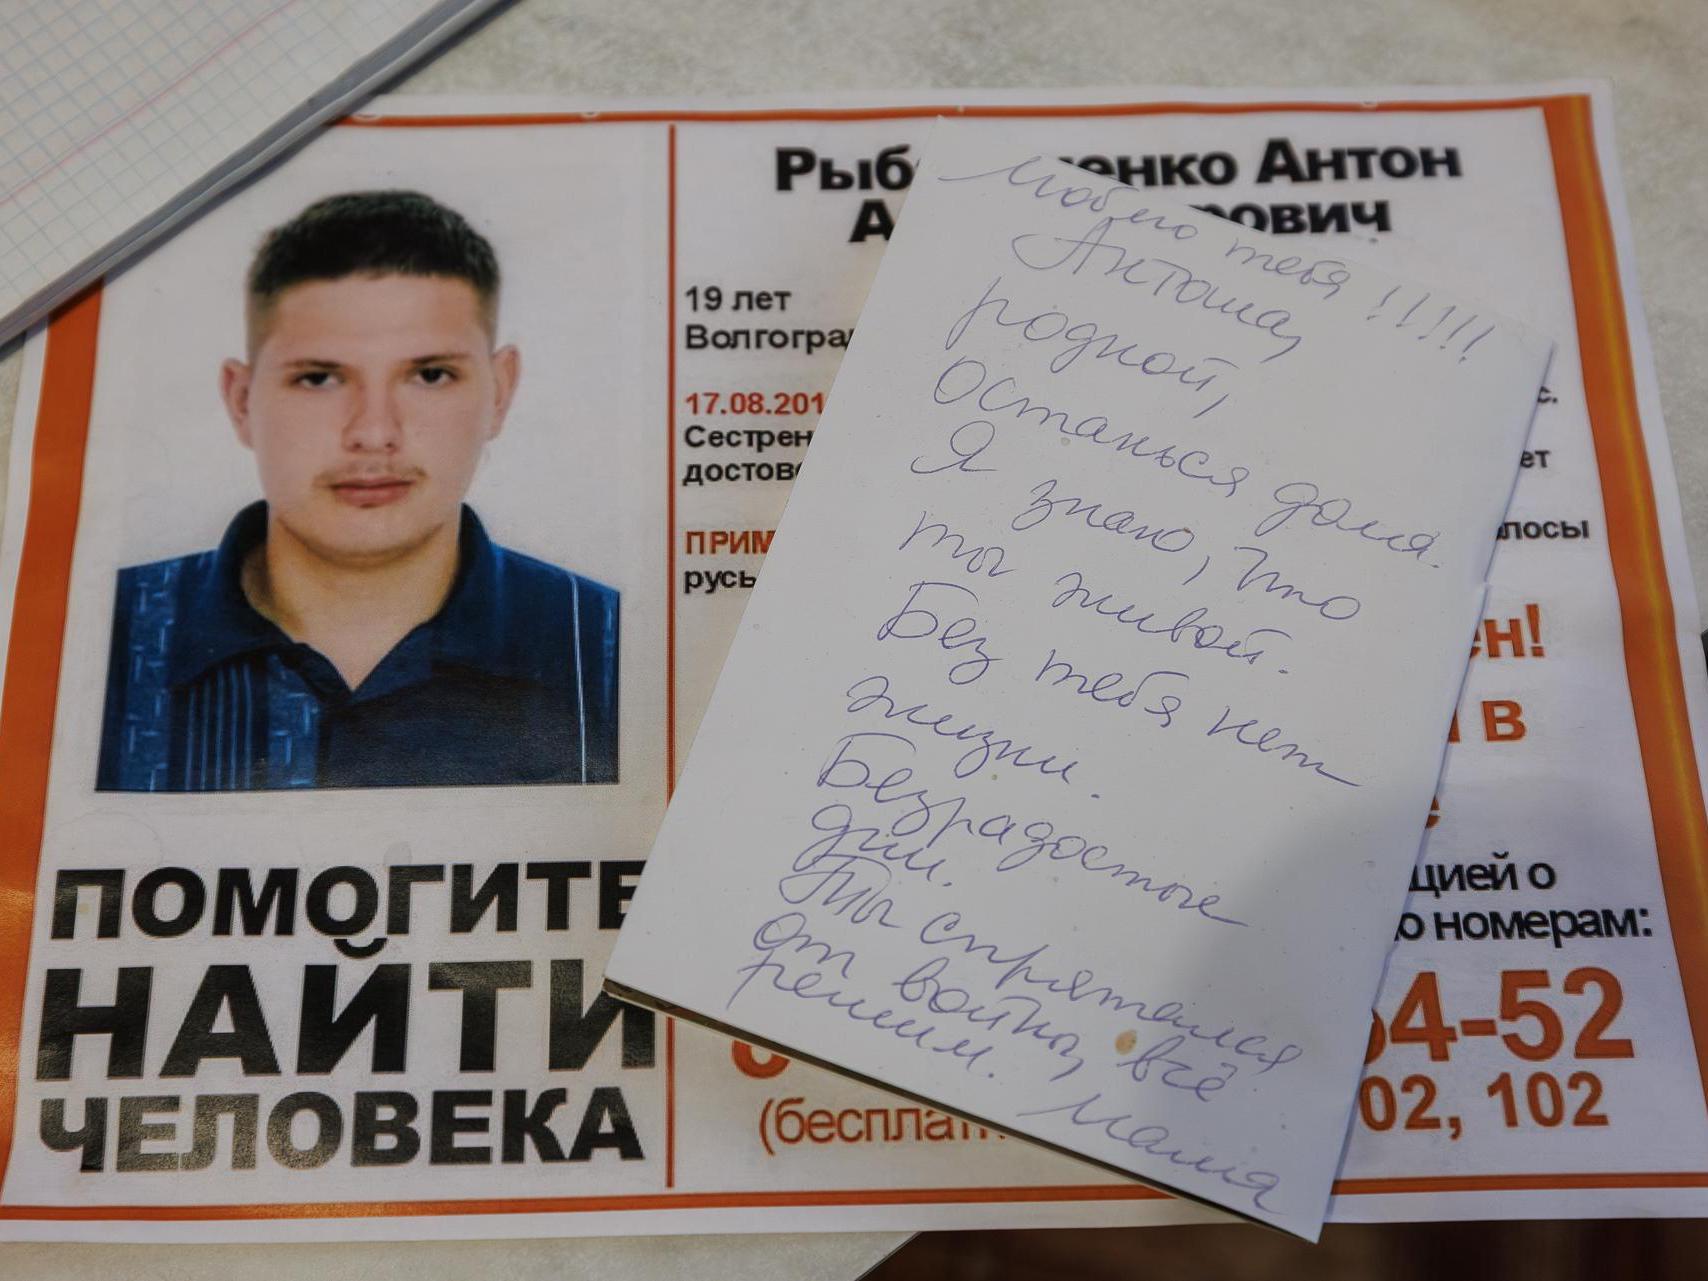 Рыб енко Антон
А рович
19 лет
Волгоград
17.08.201
Сестрен
достове
ет
ПРИМ лосы
русы
ен!
в
е
цией о
о номерам:
64-52
02, 102
(бесплатн
ПОМОГИТЕ
НАЙТИ
ЧЕЛОВЕКА
Люблю тебя!!!!!
Антоша,
родной,
останься дома.
Я знаю, что
ты живой.
Без тебя нет
жизни.
Безрадостые
дни.
Ты спрятался
от войны, всё
решим. Мама